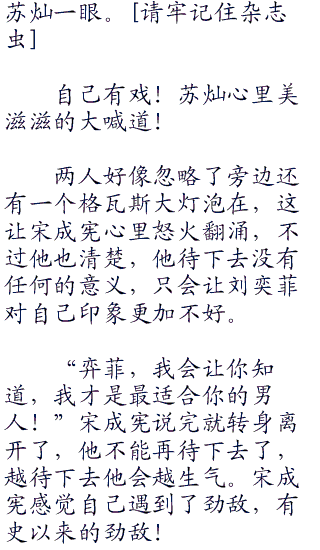 苏灿一眼。[请牢记住杂志
虫]
自己有戏！苏灿心里美
滋滋的大喊道！
两人好像忽略了旁边还
有一个格瓦斯大灯泡在，这
让宋成宪心里怒火翻涌，不
过他也清楚，他待下去没有
任何的意义，只会让刘奕菲
对自己印象更加不好。
“弈菲，我会让你知
道，我才是最适合你的男
人！”宋成宪说完就转身离
开了，他不能再待下去了，
越待下去他会越生气。宋成
宪感觉自己遇到了劲敌，有
史以来的劲敌！